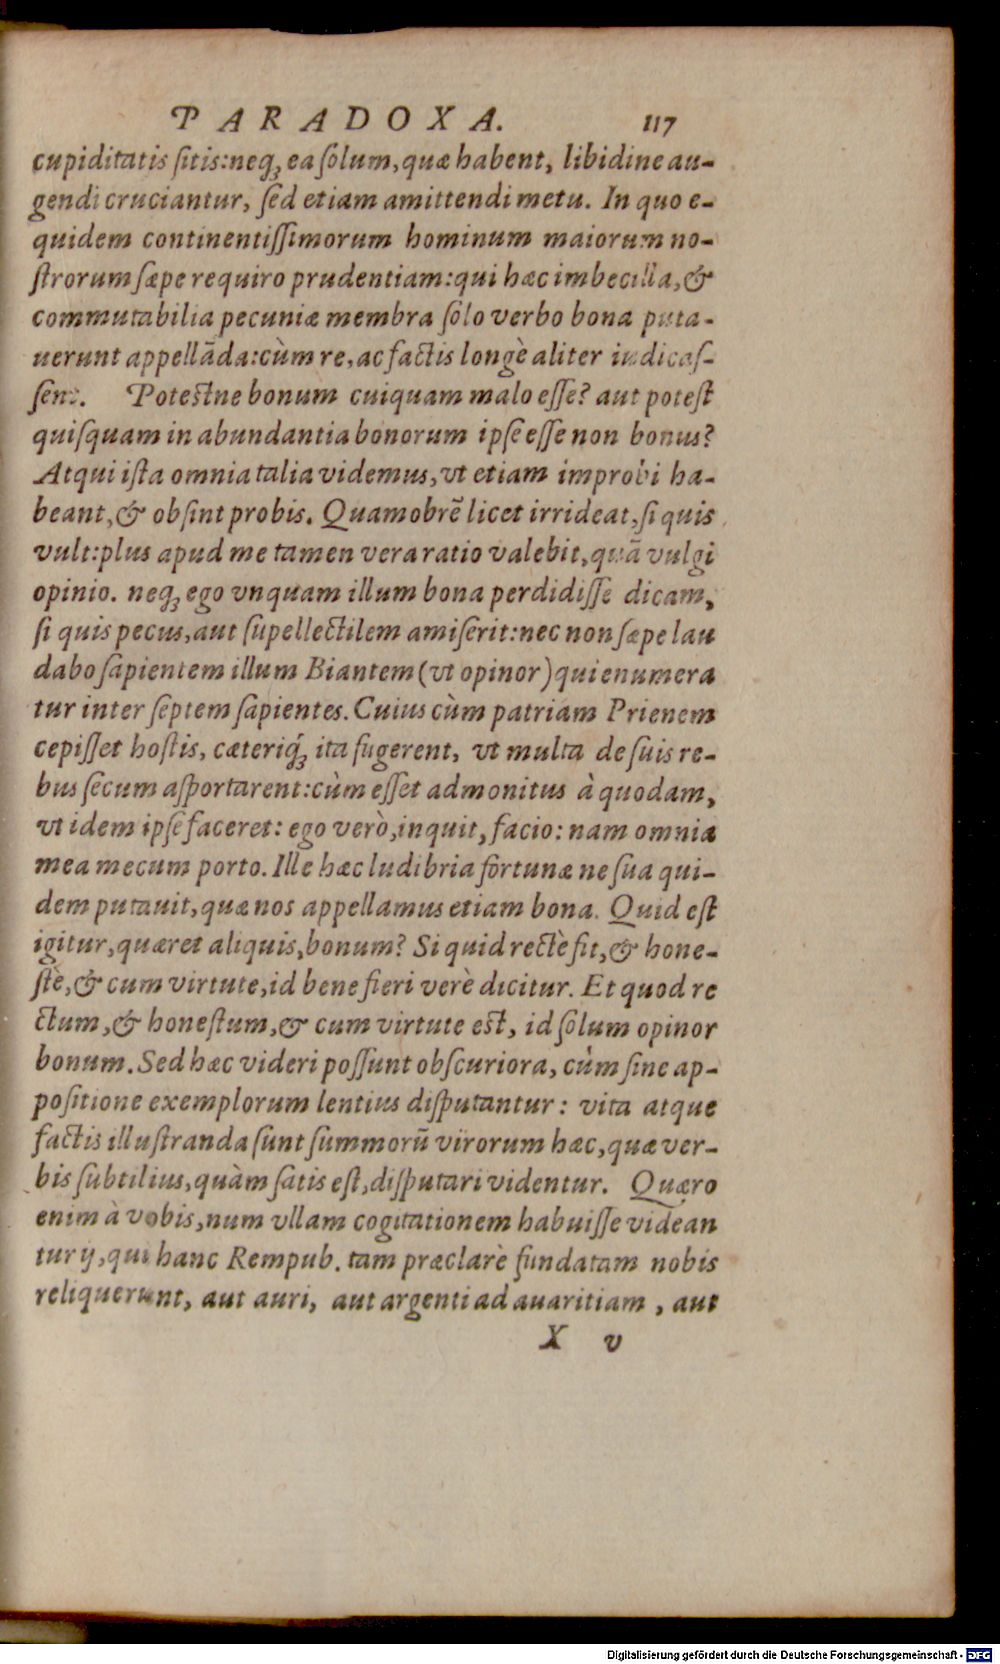 PARADOXA. 117
cupiditatis ſitis:neq́; ea ſolum,quæ habent, libidine au-
gendi cruciantur, ſed etiam amittendi metu. In quo e-
quidem continentiſſimorum hominum maiorum no-
ſtrorum ſæpe requiro prudentiam:qui hæc imbecilla,&
commutabilia pecuniæ membra ſolo verbo bona puta-
uerunt appellāda:cùm re,ac factis longè aliter iudicaſ-
ſent. Poteſtne bonum cuiquam malo eſſe? aut poteſt
quiſquam in abundantia bonorum ipſe eſſe non bonus?
Atqui iſta omnia talia videmus,vt etiam improbi ha-
beant,& obſint probis. Quamobrē licet irrideat,ſi quis
vult:plus apud me tamen vera ratio valebit,quā vulgi
opinio. neq; ego vnquam illum bona perdidiſſe dicam,
ſi quis pecus,aut ſupellectilem amiſerit:nec non ſæpe lau
dabo ſapientem illum Biantem (vt opinor) qui enumera
tur inter ſeptem ſapientes. Cuius cùm patriam Prienem
cepiſſet hoſtis, cæteriq́; ita fugerent, vt multa de ſuis re-
bus ſecum aſportarent:cùm eſſet admonitus à quodam,
vt idem ipſe faceret: ego verò,inquit, facio: nam omnia
mea mecum porto. Ille hæc ludibria fortunæ ne ſua qui-
dem putauit,quæ nos appellamus etiam bona. Quid eſt
igitur,quæret aliquis,bonum? Si quid rectè fit,& hone-
ſtè,& cum virtute,id bene fieri verè dicitur. Et quod re
ctum,& honeſtum,& cum virtute eſt, id ſolum opinor
bonum. Sed hæc videri poſſunt obſcuriora, cùm ſine ap-
poſitione exemplorum lentius diſputantur: vita atque
factis illuſtranda ſunt ſummorū virorum hæc,quæ ver-
bis ſubtilius,quàm ſatis eſt,diſputari videntur. Quæro
enim à vobis,num vllam cogitationem habuiſſe videan
tur ij,qui hanc Rempub. tam præclarè fundatam nobis
reliquerunt, aut auri, aut argenti ad auaritiam, aut
X v
Digitalisierung gefördert durch die Deutsche Forschungsgemeinschaft - DFG